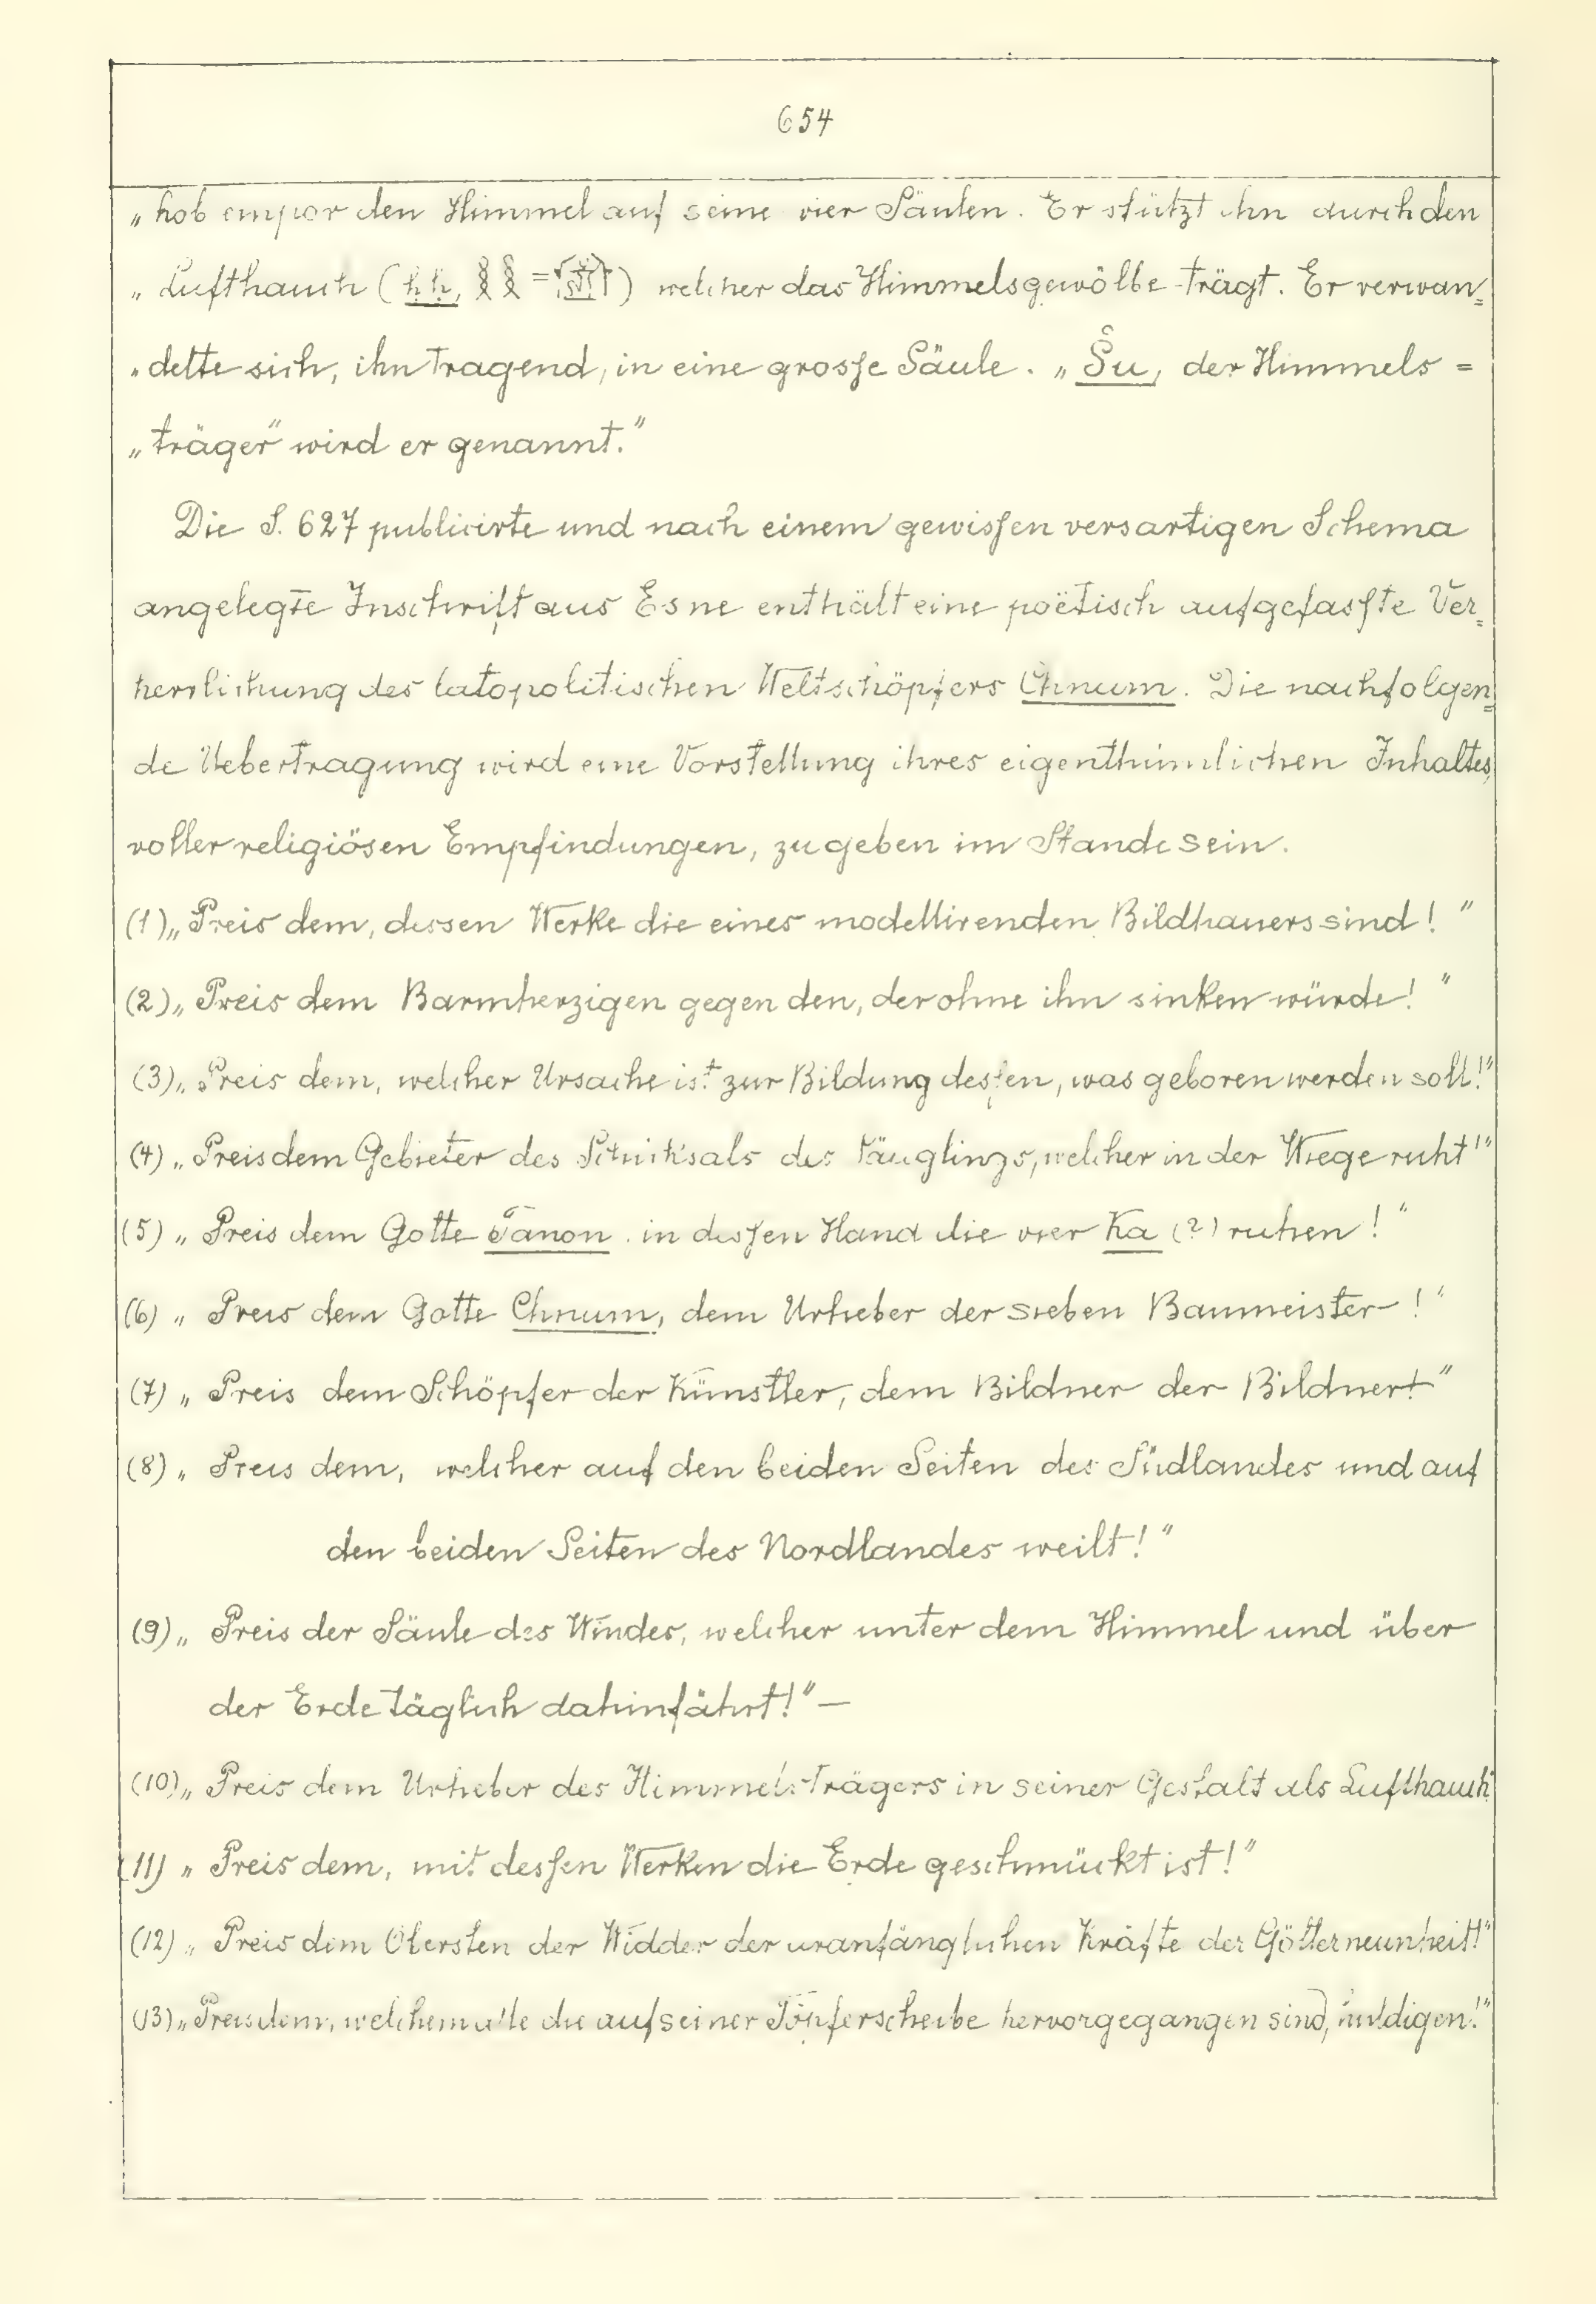 654
„hob empor den Himmel auf seine vier Säulen. Er stützt ihn durch den
„Lufthauch (ḥḥ, 𓎛𓎛 = ) welcher das Himmelsgewölbe trägt. Er verwan=
„delte sich, ihn tragend, in eine grosse Säule. „Šu, der Himmels=
„träger“ wird er genannt.“
Die S. 627 publicirte und nach einem gewissen versartigen Schema
angelegte Inschrift aus Esne enthält eine poëtisch aufgefasste Ver=
herrlichung des latopolitischen Weltschöpfers Chnum. Die nachfolgen=
de Uebertragung wird eine Vorstellung ihres eigenthümlichen Inhaltes,
voller religiösen Empfindungen, zu geben im Stande sein.
(1) „Preis dem, dessen Werke die eines modellirenden Bildhauers sind!“
(2) „Preis dem Barmherzigen gegen den, der ohne ihn sinken würde!“
(3) „Preis dem, welcher Ursache ist zur Bildung dessen, was geboren werden soll!“
(4) „Preis dem Gebieter des Schicksals des Säuglings, welcher in der Wiege ruht!“
(5) „Preis dem Gotte Tanon in dessen Hand die vier Ka (?) ruhen!“
(6) „Preis dem Gotte Chnum, dem Urheber der sieben Baumeister!“
(7) „Preis dem Schöpfer der Künstler, dem Bildner der Bildner!“
(8) „Preis dem, welcher auf den beiden Seiten des Südlandes und auf
den beiden Seiten des Nordlandes weilt!“
(9) „Preis der Säule des Windes, welcher unter dem Himmel und über
der Erde täglich dahinfährt!“ —
(10) „Preis dem Urheber des Himmels-Trägers in seiner Gestalt als Lufthauch“
(11) „Preis dem, mit dessen Werken die Erde geschmückt ist!“
(12) „Preis dem Obersten der Widder der uranfänglichen Kräfte der Götterneunheit!“
(13) „Preis dem, welchem alle die auf seiner Töpferscheibe hervorgegangen sind, huldigen!“